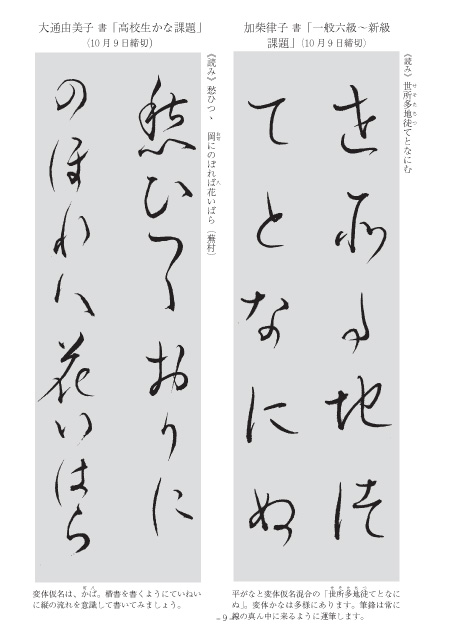 加柴律子 書「一般六級〜新級
課題」(10月9日締切)
《読み》世所多地徒てとなにむ
世所多地徒
てとなにぬ
平がなと変体仮名混合の「世所多地徒てとなに
ぬ」。変体かなは多様にあります。筆鋒は常に
線の真ん中に来るように運筆します。
大通由美子 書「高校生かな課題」
(10月9日締切)
《読み》愁ひつゝ 岡にのぼれば花いばら（蕪村）
愁ひつゝお可に
のほれハ花いはら
変体仮名は、かば。楷書を書くようにていねい
に縦の流れを意識して書いてみましょう。
- 9 -